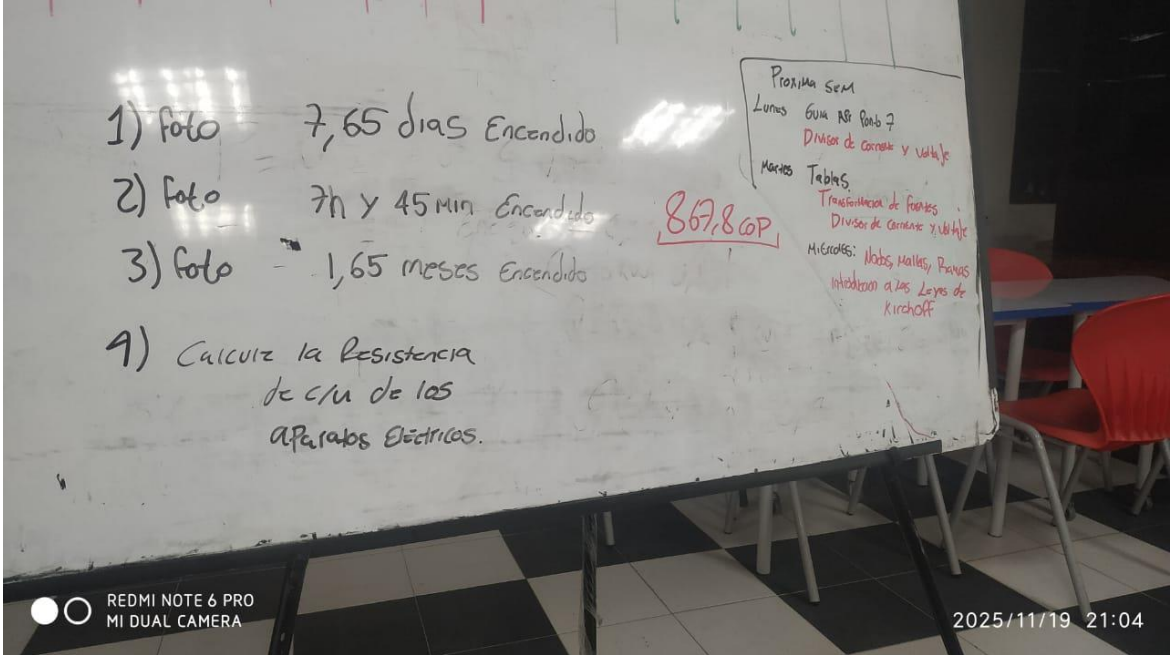 1) foto 7,65 dias Encendido
2) foto 7h y 45 Min Encendido
3) foto - 1,65 meses Encendido
4) Calculz la Resistencia
de c/u de los
aparatos Eléctricos.
867,8 COP
Proxima SEM
Lunes Guia Punto 7
Divisor de corriente y voltaje
Martes Tablas
Transformacion de fuentes
Divisor de corriente y voltaje
Miercoles: Nodos, Mallas, Ramas
introduccion a las Leyes de
Kirchoff
REDMI NOTE 6 PRO
MI DUAL CAMERA
2025/11/19 21:04